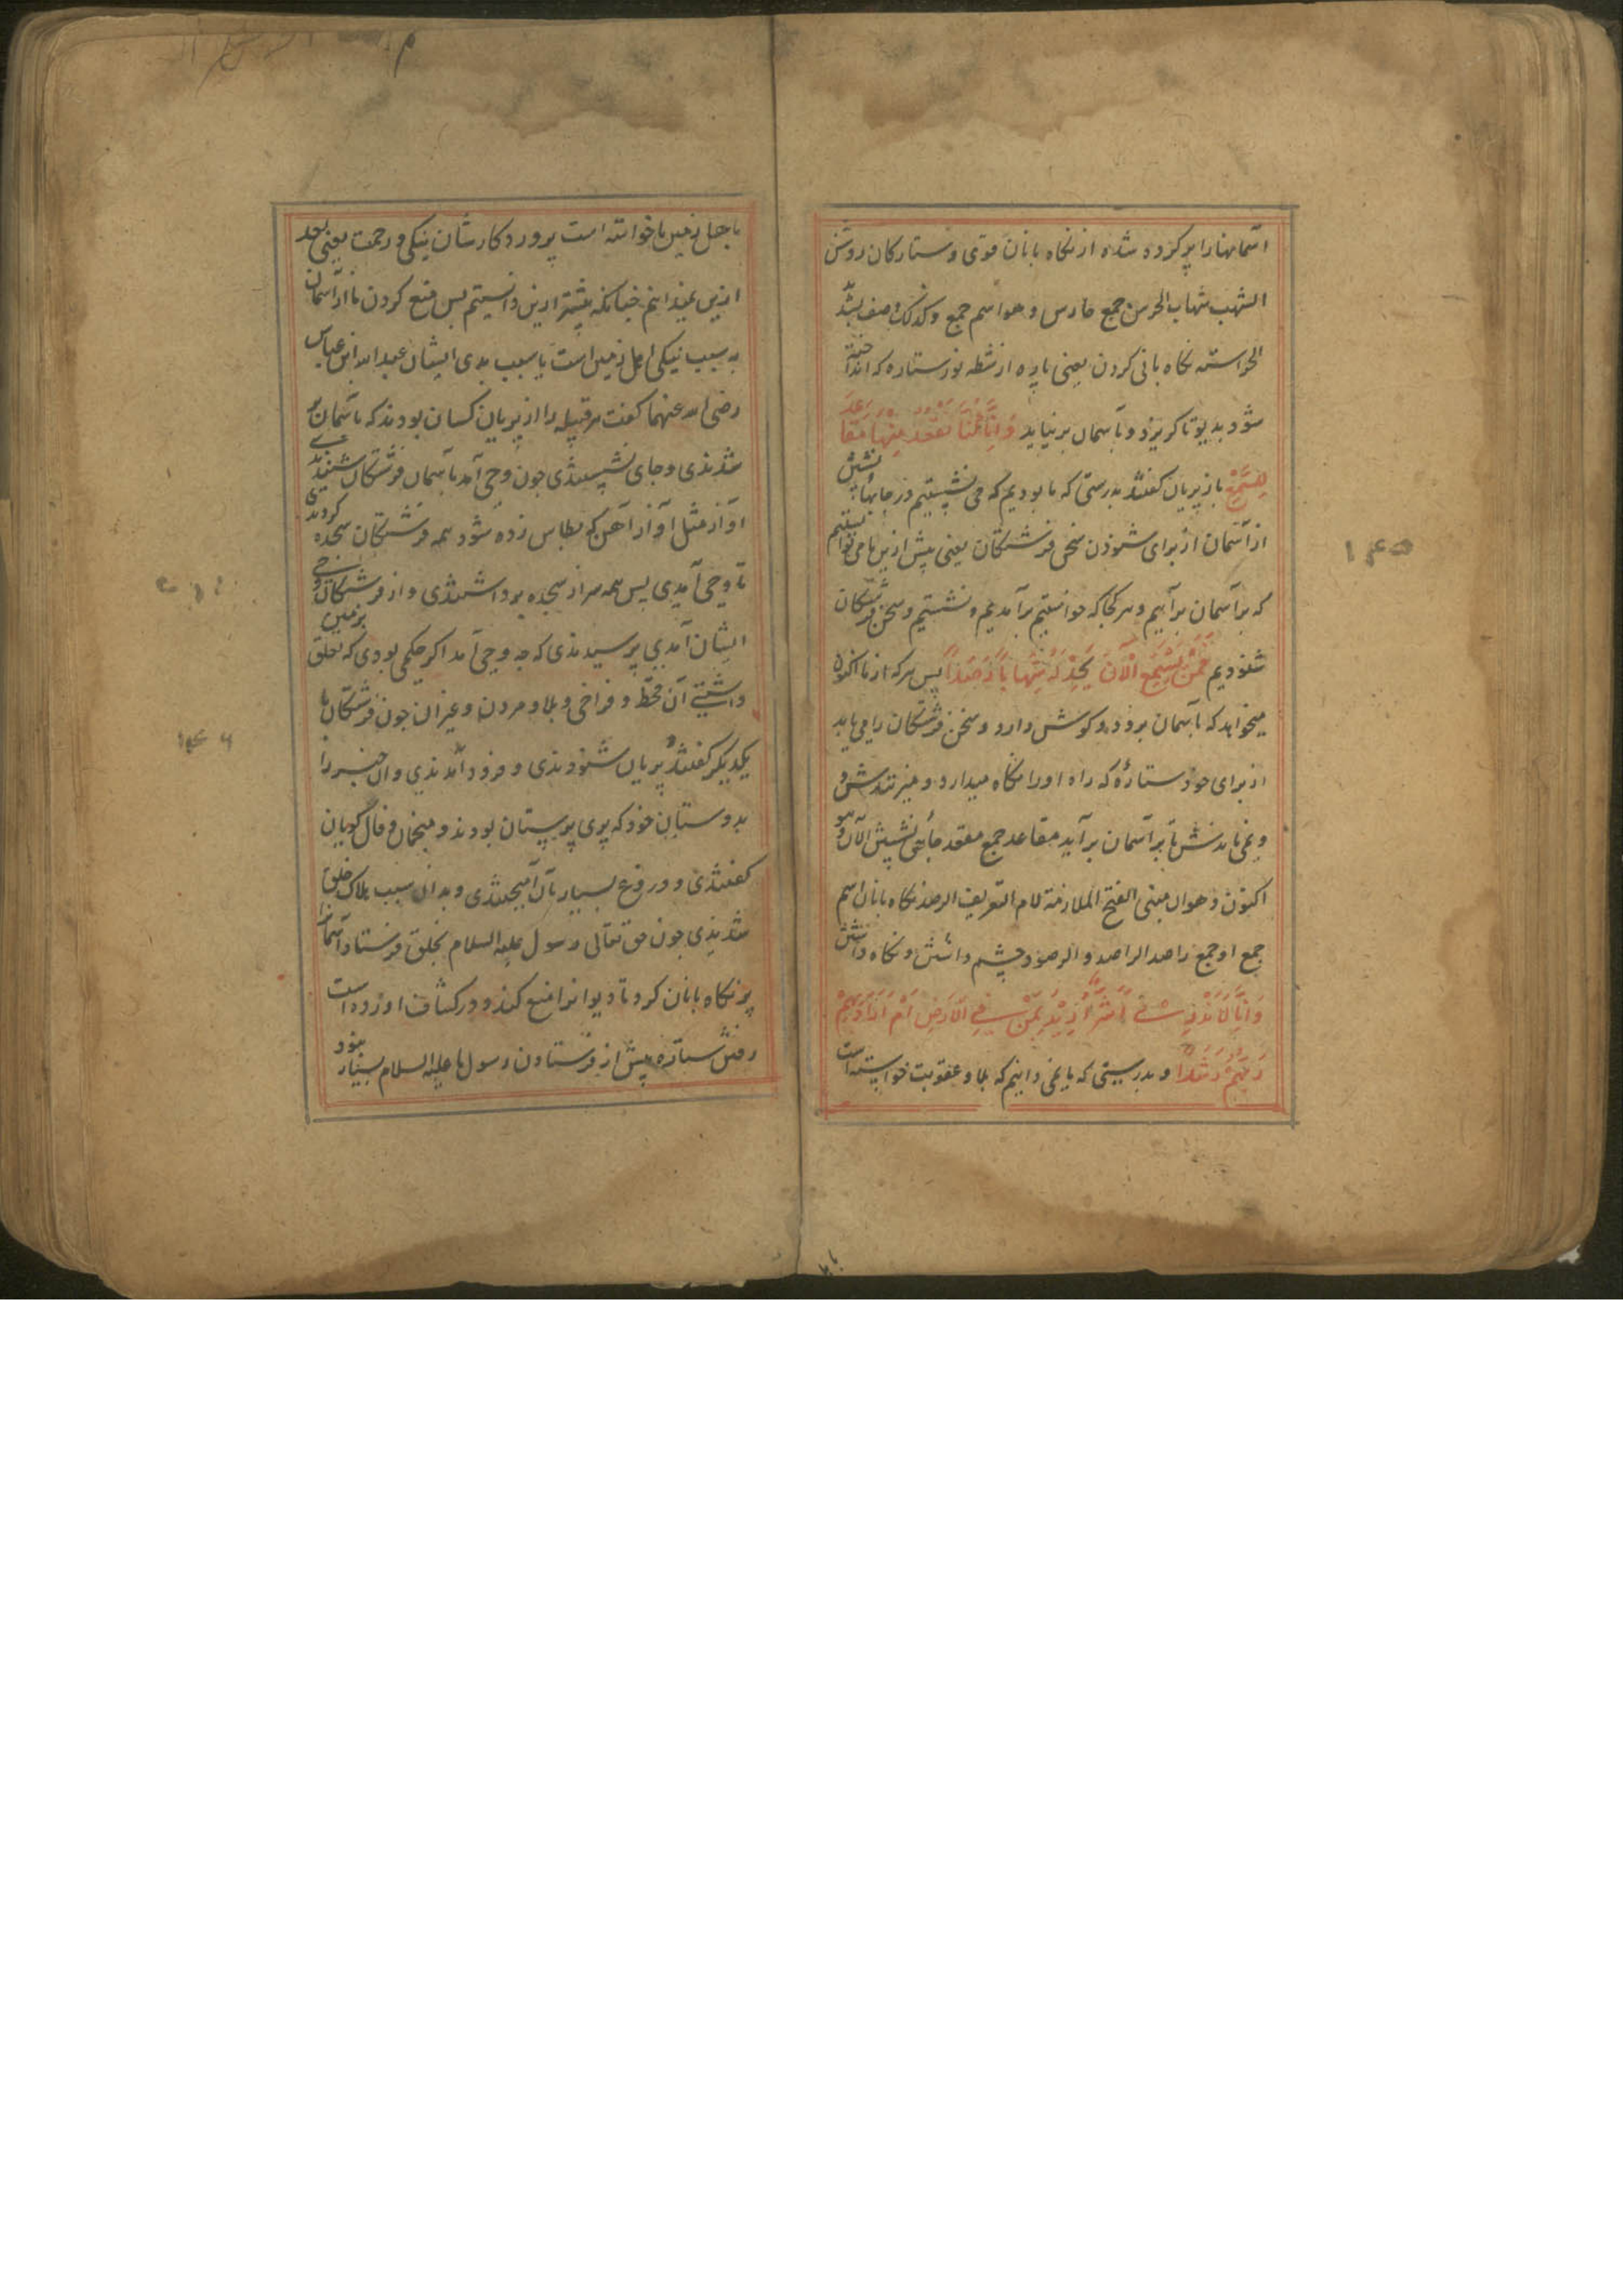 آسمانها را پر کرده شده از نکاه بانان قوی و ستارکان روشن
الشهب شهاب الحرس جمع حارس و هو اسم جمع و کذلک وصف بشد
الحراسته نکاه بانی کردن یعنی پاره از شطه نور ستاره که انداخته
شود بدیو تا کریزد و بآسمان بر نیاید وَاَنَّا كُنَّا نَقْعُدُ مِنْهَا مَقَاعِدَ
لِلسَّمْعِ باز پریان کفتند بدرستی که ما بودیم که می نشستیم در جایها نشیش
از آسمان از برای شنودن سخن فرشتکان یعنی پیش ازین ما می توانستیم
که بر آسمان برآییم و هر کجا که خواستیم برآمدیم و نشستیم و سخن فرشتکان
شنودیم فَمَنْ يَسْتَمِعِ الْآنَ يَجِدْ لَهُ شِهَابًا رَصَدًا پس هر که از ما اکنون
میخواهد که بآسمان برود و کوش دارد و سخن فرشتکان را می یابد
از برای خود ستارۀ که راه او را نکاه میدارد و میزنندش و
و نمی مانندش تا بر آسمان برآید مقاعد جمع مقعد جائی نشیش الآن و هو
اکنون و هو ان مبنی الفتح الملازمة للام التعریف الرصد نکاه بانان اسم
جمع او جمع راصد الراصد و الرصود چشم داشتن و نکاه داشتن
وَاَنَّا لَا نَدْرِي اَشَرٌّ اُرِيدَ بِمَنْ فِي الْاَرْضِ اَمْ اَرَادَ بِهِمْ
رَبُّهُمْ رَشَدًا و بدرستی که ما نمی دانیم که بلا و عقوبت خواسته است
۱۴۵
باهل زمین یا خواسته است پروردکارشان نیکی و رحمت یعنی بعد
ازین نمیدانیم چنانکه پیشتر ازین دانستیم پس منع کردن ما از آسمان
به سبب نیکی اهل زمین است یا بسبب بدی ایشان عبد الله ابن عباس
رضی الله عنهما کفت هر قبیله را از پریان کسان بودند که بآسمان بر
شدندی و جای نشستندی چون وحی آمد بآسمان فرشتکان شنیدندی
آواز مثل آواز آهن که بطاس زده شود همه فرشتکان سجده کردندی
تا وحی آمدی پس همه سر از سجده برداشتندی و از فرشتکان وحی
ایشان آمدی پرسیدندی که چه وحی آمد اکر حکمی بودی که تعلق بزمین
داشتی آن قحط و فراخی و بلا و مردن و غیر آن چون فرشتکان با
یکدیکر کفتندی پریان شنودندی و فرود آمدندی و آن خبر را
بدوستان خود که پری پرستان بودند و منجمان و فال کویان
کفتندی و دروغ بسیار بآن آمیختندی و بدان سبب هلاک خلق
شدندی چون حق تعالی رسول علیه السلام بخلق فرستاد آسمانرا
پر نکاه بانان کرد تا دیوانرا منع کنند و در کشاف آورده است
رفتن ستاره پیش از فرستادن رسول ما علیه السلام بسیار نبود